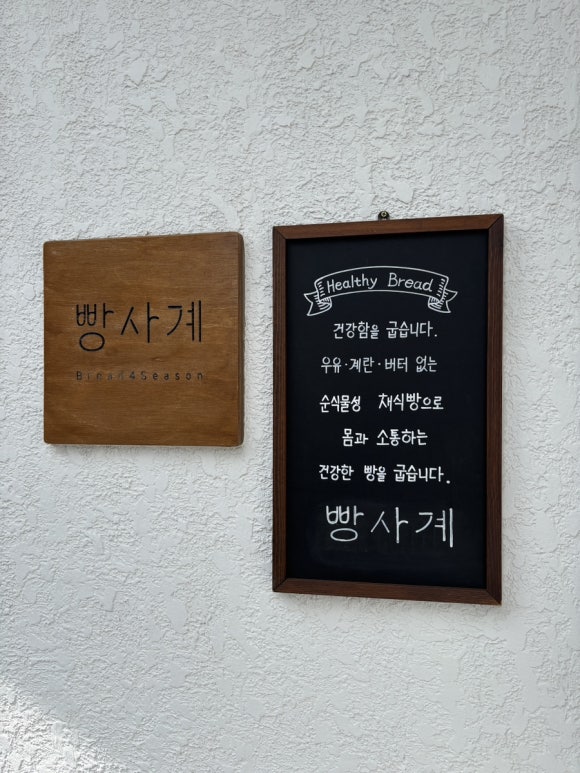 빵사계
Bread4Season
Healthy Bread
건강함을 굽습니다.
우유·계란·버터 없는
순식물성 채식빵으로
몸과 소통하는
건강한 빵을 굽습니다.
빵사계